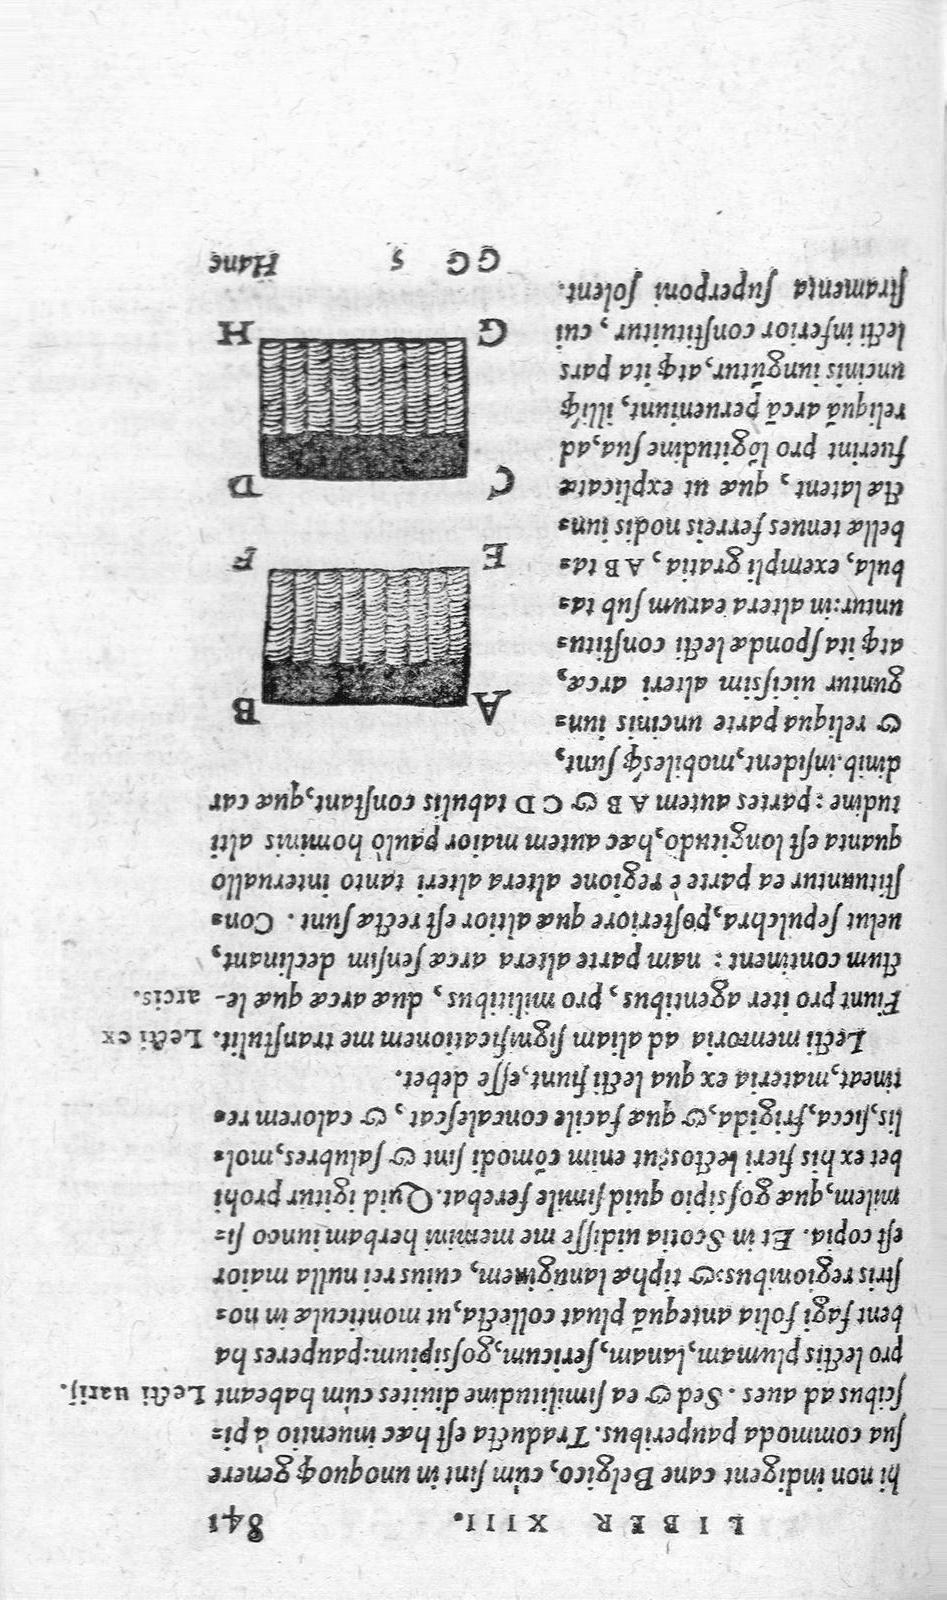 LIBER XIII. 841
hi non indigent cane Belgico, cùm sint in unoquoq; genere
sua commoda pauperibus. Traducta est hæc inuentio à pi=
scibus ad aues. Sed & ea similitudine diuites cùm habeant Lecti uarij.
pro lectis plumam, lanam, sericum, gossipium: pauperes ha
bent fagi folia antequā pluat collecta, ut monticulæ in no=
stris regionibus: & tiphæ lanuginem, cuius rei nulla maior
est copia. Et in Scotia uidisse me memini herbam iunco si=
milem, quæ gossipio quid simile ferebat. Quid igitur prohi
bet ex his fieri lectos: ut enim cōmodi sint & salubres, mol=
lis, sicca, frigida, & quæ facile concalescat, & calorem re=
tineat, materia ex qua lecti fiunt, esse debet.
Lecti memoria ad aliam significationem me transtulit. Lecti ex
Fiunt pro iter agentibus, pro militibus, duæ arcæ quæ le- arcis.
ctum continent: nam parte altera arcæ sensim declinant,
uelut sepulchra, posteriore quæ altior est rectæ sunt. Con=
stituuntur ea parte è regione altera alteri tanto interuallo
quanta est longitudo, hæc autem maior paulò hominis alti
tudine: partes autem AB & CD tabulis constant, quæ car
dinib. insident, mobilesq; sunt,
& reliqua parte uncinis iun=
guntur uicissim alteri arcæ,
atq; ita spondæ lecti constitu=
untur: in altera earum sub ta=
bula, exempli gratia, AB ta=
bellæ tenues ferreis nodis iun=
ctæ latent, quæ ut explicatæ
fuerint pro lōgitudine sua, ad
reliquā arcā perueniunt, illíq;
uncinis iungūtur, atq; ita pars
lecti inferior constituitur, cui
stramenta superponi solent.
A B
E F
C D
G H
GG 5 Hanc